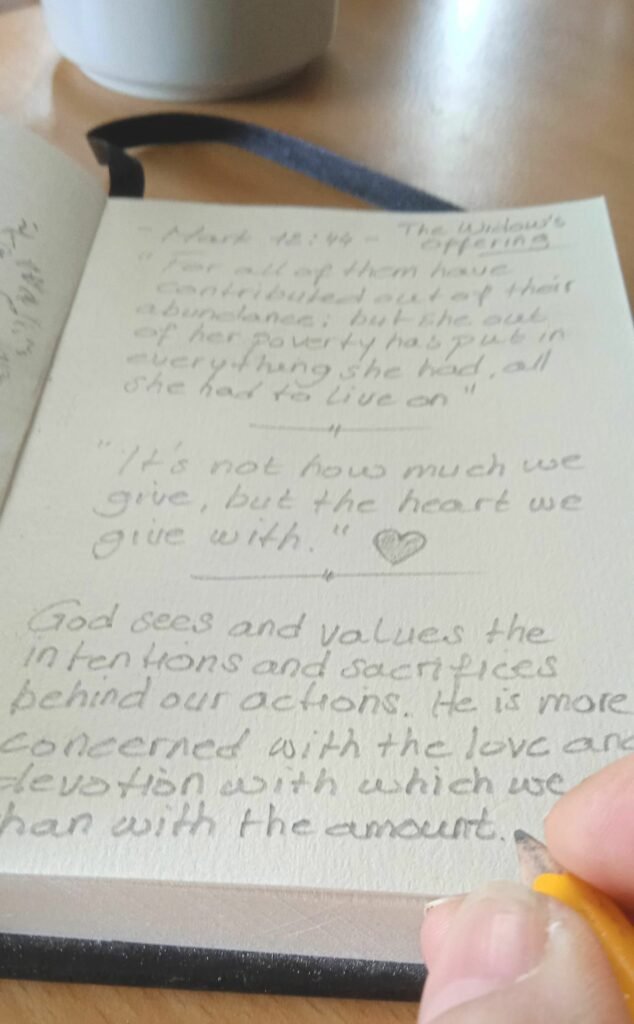 - Mark 12:44 - The Widow's
Offering
"For all of them have
contributed out of their
abundance; but she out
of her poverty has put in
everything she had, all
she had to live on"
"It's not how much we
give, but the heart we
give with."
God sees and values the
intentions and sacrifices
behind our actions. He is more
concerned with the love and
devotion with which we
han with the amount.